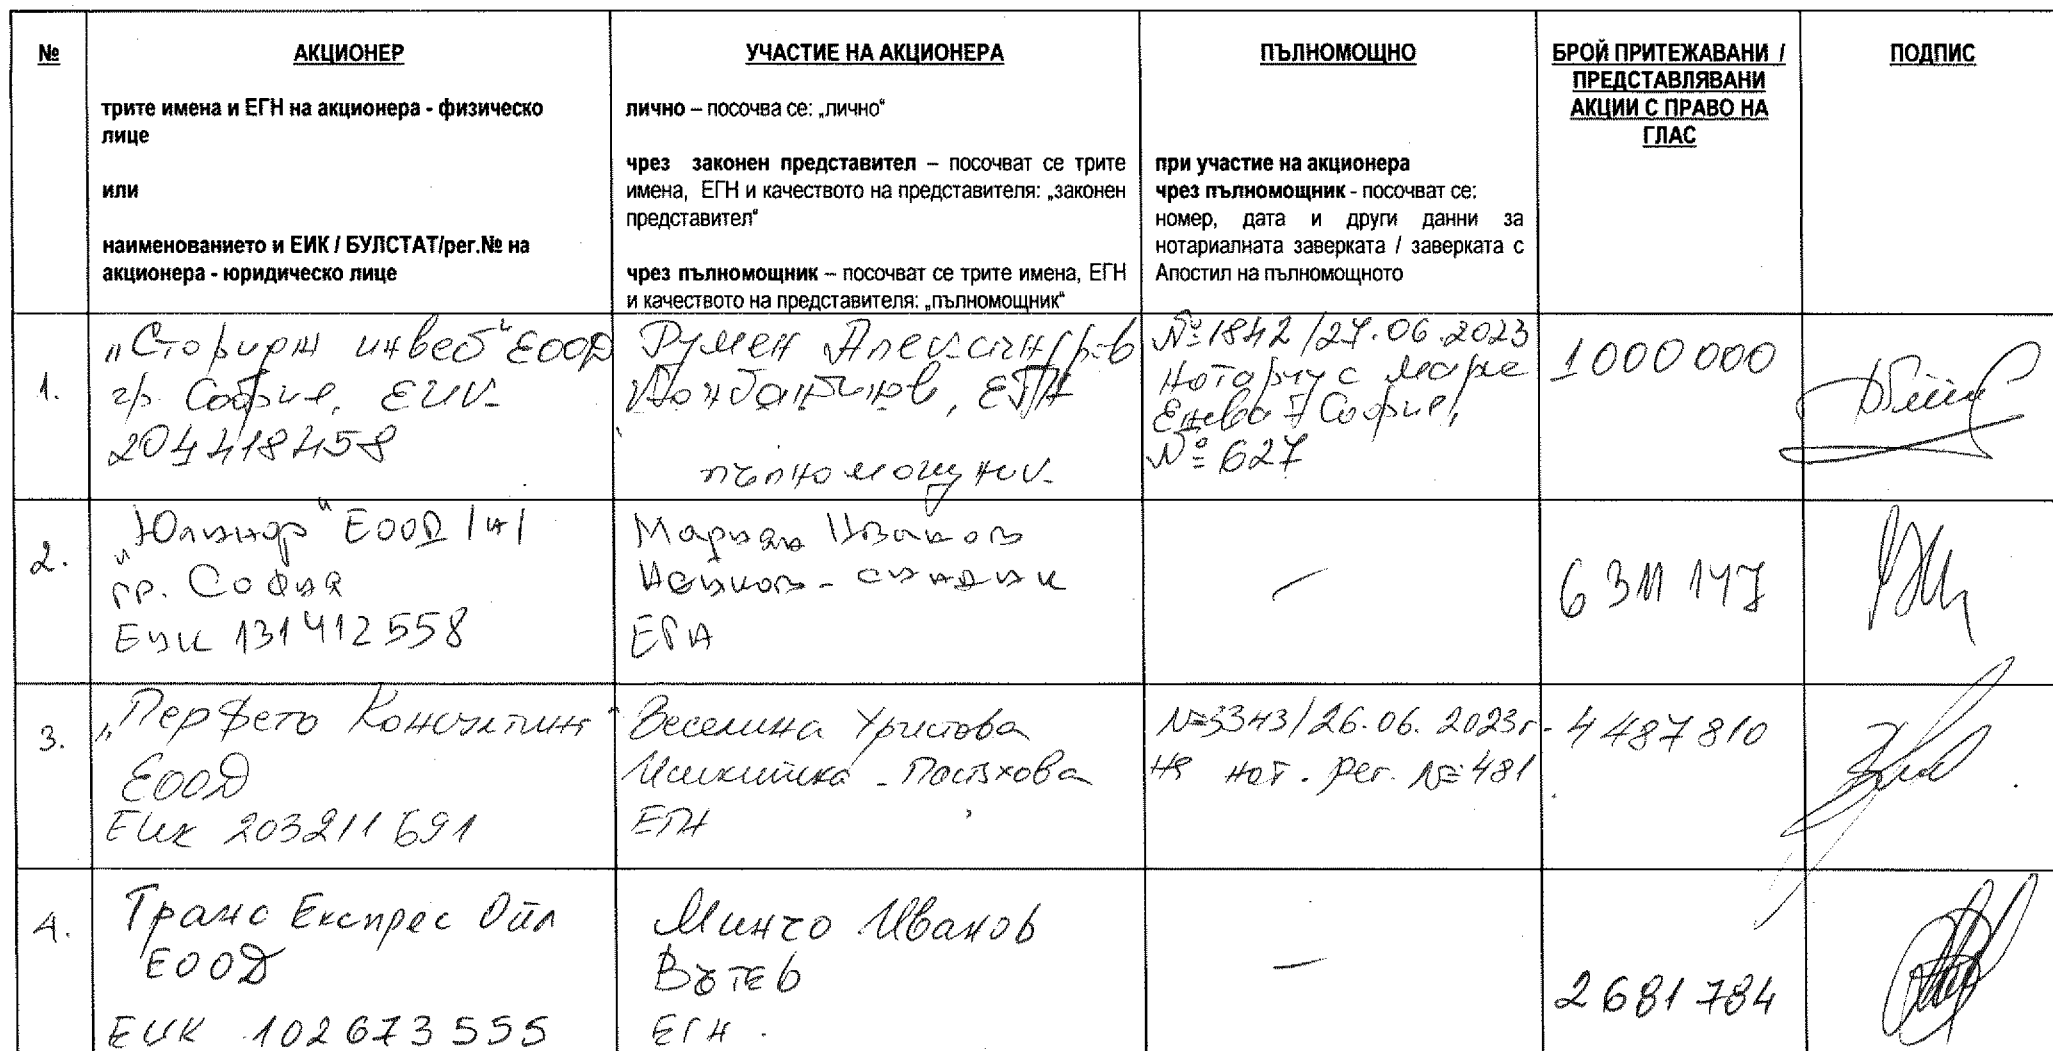 №
АКЦИОНЕР
трите имена и ЕГН на акционера - физическо
лице
или
наименованието и ЕИК / БУЛСТАТ/рег.№ на
акционера - юридическо лице
УЧАСТИЕ НА АКЦИОНЕРА
лично – посочва се: „лично“
чрез законен представител – посочват се трите
имена, ЕГН и качеството на представителя: „законен
представител“
чрез пълномощник – посочват се трите имена, ЕГН
и качеството на представителя: „пълномощник“
ПЪЛНОМОЩНО
при участие на акционера
чрез пълномощник - посочват се:
номер, дата и други данни за
нотариалната заверката / заверката с
Апостил на пълномощното
БРОЙ ПРИТЕЖАВАНИ /
ПРЕДСТАВЛЯВАНИ
АКЦИИ С ПРАВО НА
ГЛАС
ПОДПИС
1.
ЕООД
гр. София, ЕИК
204418458
Румен
ЕГН
пълномощник
№ 1842 /27.06.2023
Нотариус
София,
№ 627
1000 000
2.
ЕООД /н/
гр. София
ЕИК 131412558
Мариан Иванов
- синдик
ЕГН
—
6 311 147
3.
„Перфето Консултинг“
ЕООД
ЕИК 203211691
Веселина Христова
ЕГН
№3343/26.06.2023г.
на нот. рег. №481
4 487 810
4.
Транс Експрес Ойл
ЕООД
ЕИК 102673555
Минчо Иванов
Вътев
ЕГН.
—
2 681 784